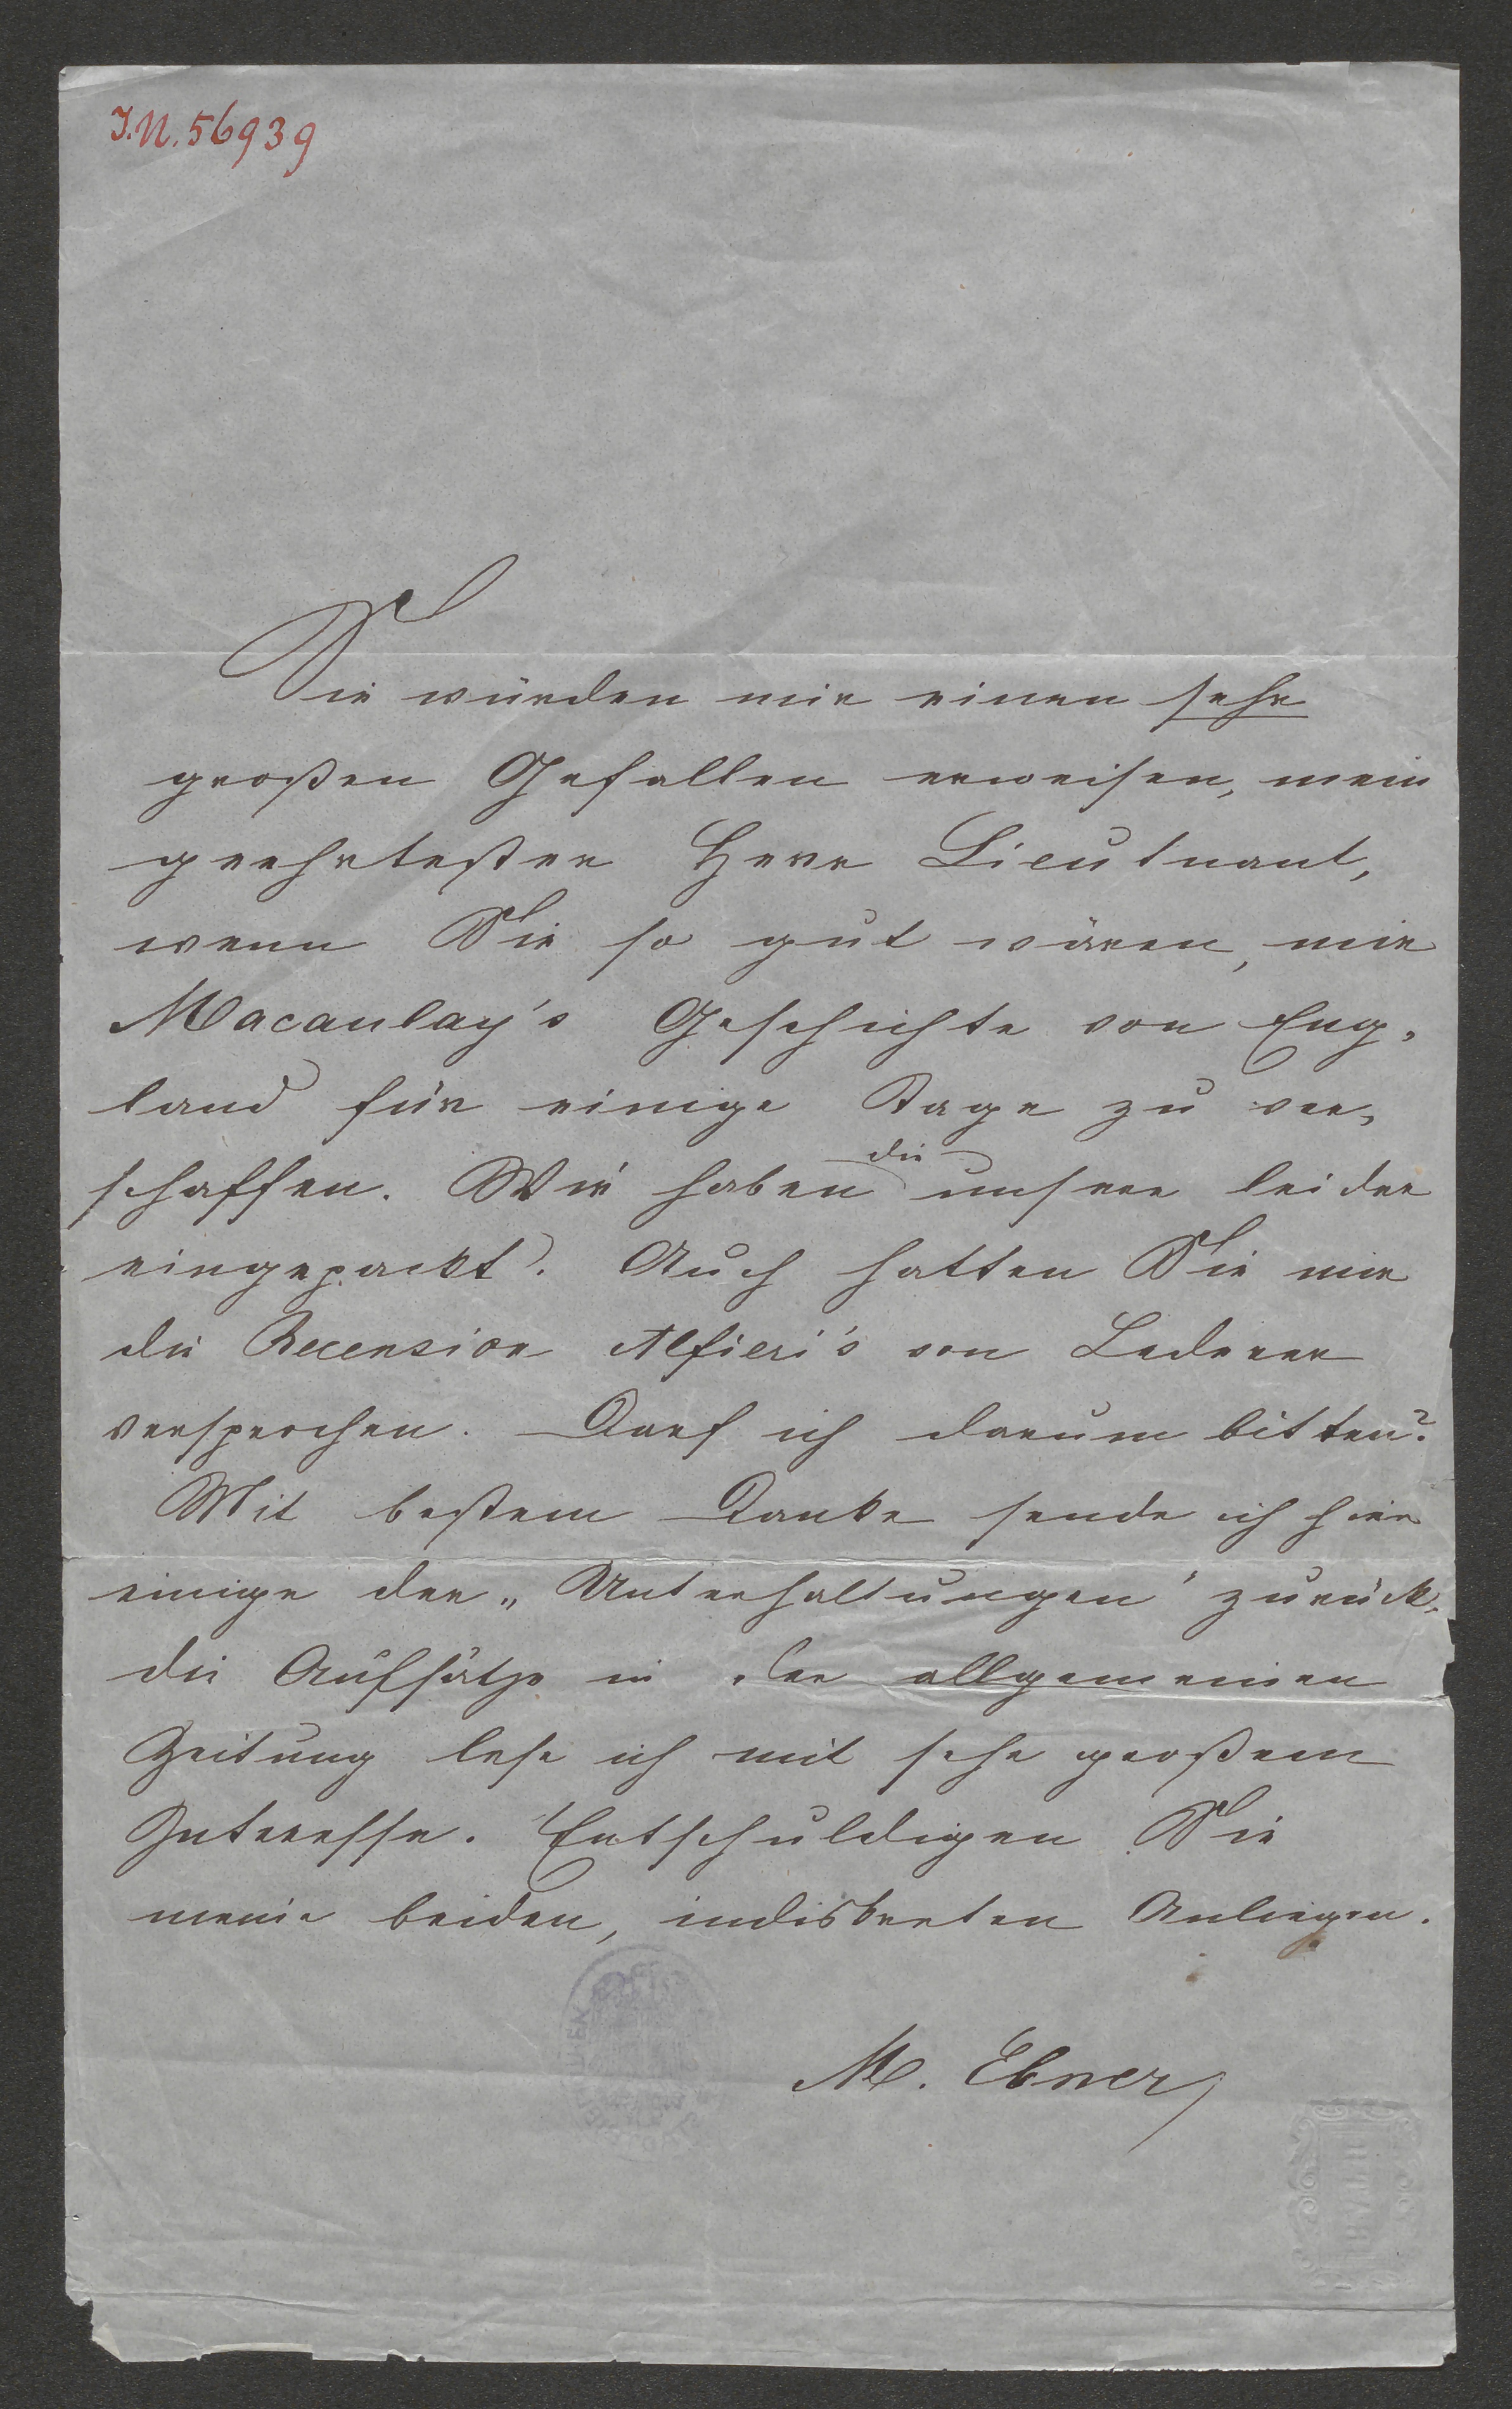 I.N. 56939
Sie würden mir einen sehr
großen Gefallen erweisen, mein
geehrtester Herr Lieutnant,
wenn Sie so gut wären, mir
Macaulay's Geschichte von Eng-
land für einige Tage zu ver-
schaffen. Wir haben die unsere leider
eingepackt. Auch hatten Sie mir
die Recension Alfieri's von Lederer
versprochen. Darf ich darum bitten?
Mit bestem Danke sende ich hier
einige der „Unterhaltungen" zurück,
die Aufsätze in der allgemeinen
Zeitung lese ich mit sehr großem
Interesse. Entschuldigen Sie
meine beiden, indiskreten Anliegen.
M. Ebner